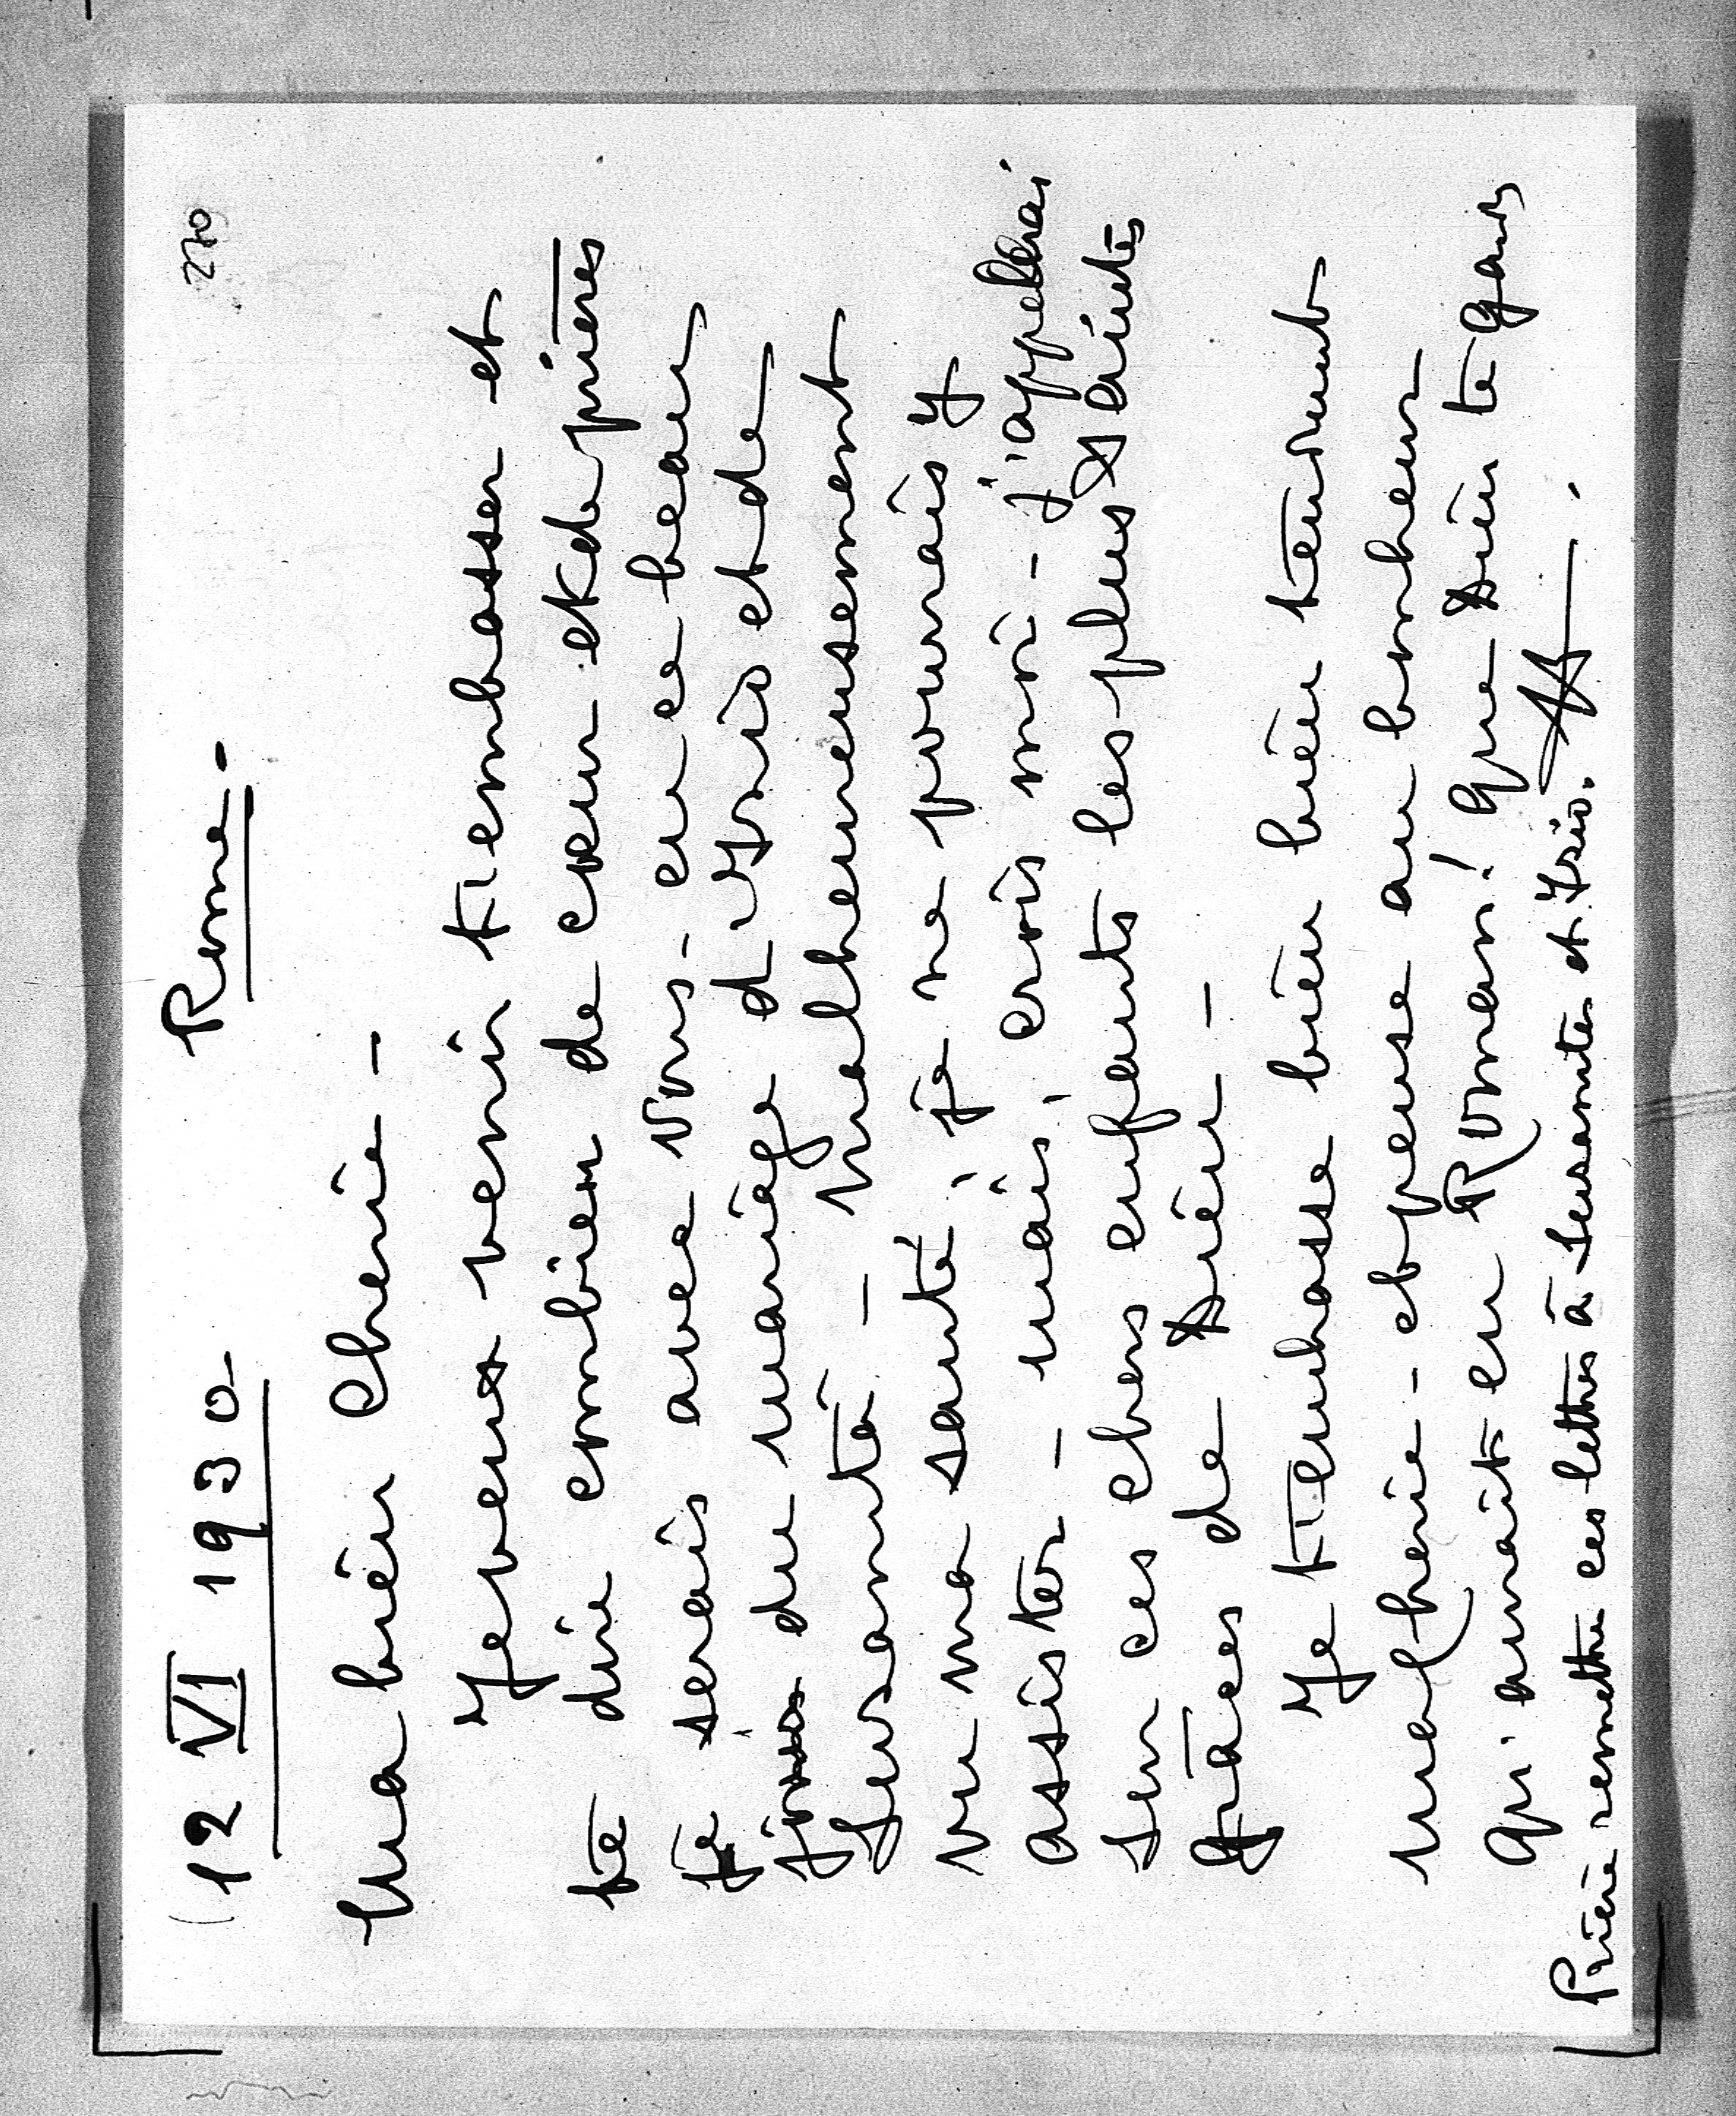 270
12 VI 1930 - Rome.
Ma bien Chérie -
Je veux venir t'embrasser et
te dire combien de cœur et de prières
je serais avec vous - en ce beau
jour du mariage d'Ysio et de
Susanté - Malheureusement
vu ma santé, je ne pourrais y
assister - mais, crois moi - j'appellerai
sur ces chers enfants les plus Saintes
grâces de Dieu -
Je t'embrasse bien bien tendrement
ma Chérie - et pense au bonheur
qu'aurait eu Roman! Que Dieu te garde
Prière remettre ces lettres à Susanté et Ysio.